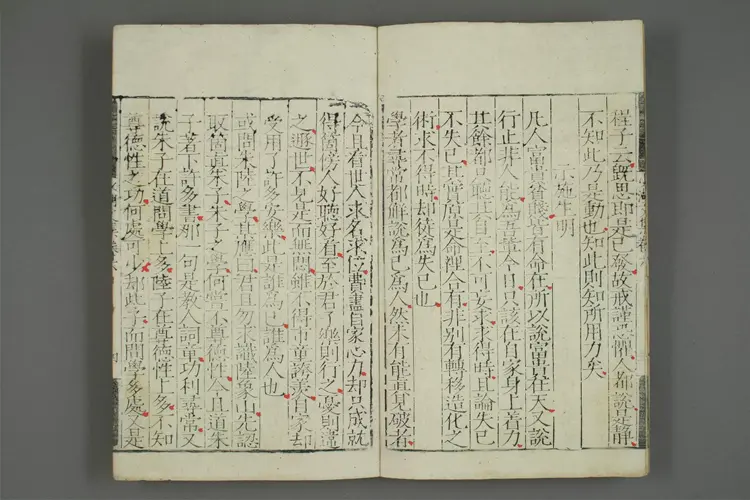 程子云既思即是已發故戒謹恐懼人都說是靜
不知此乃是動也知此則知所用力矣
示施生明
凡人富貴貧賤皆有命在所以說富貴在天又說
行止非人能為吾輩今日只該在自家身上着力
其餘都只聽其自至不可妄求求得時且論失己
不失己其實原是命裡合有非別有轉移造化之
術求不得時却徒為失己也
學者尋常都解說為己為人然未有能真見破者
今且看世人求名求位費盡自家心力却只成就
得箇傍人好聽好看至於君子樂則行之憂則違
之遯世不見是而無悶雖不得市童誇羡自家却
受用了許多安樂此是誰為己誰為人也
或問朱陸之學其應曰君且勿求識陸象山先認
取箇真朱子朱子之學何嘗不尊德性今且道朱
子著下許多書那一句是教人詞章功利尋常又
說朱子在道問學上多陸子在尊德性上多不知
尊德性之功何處可少却此子而問學多處又是